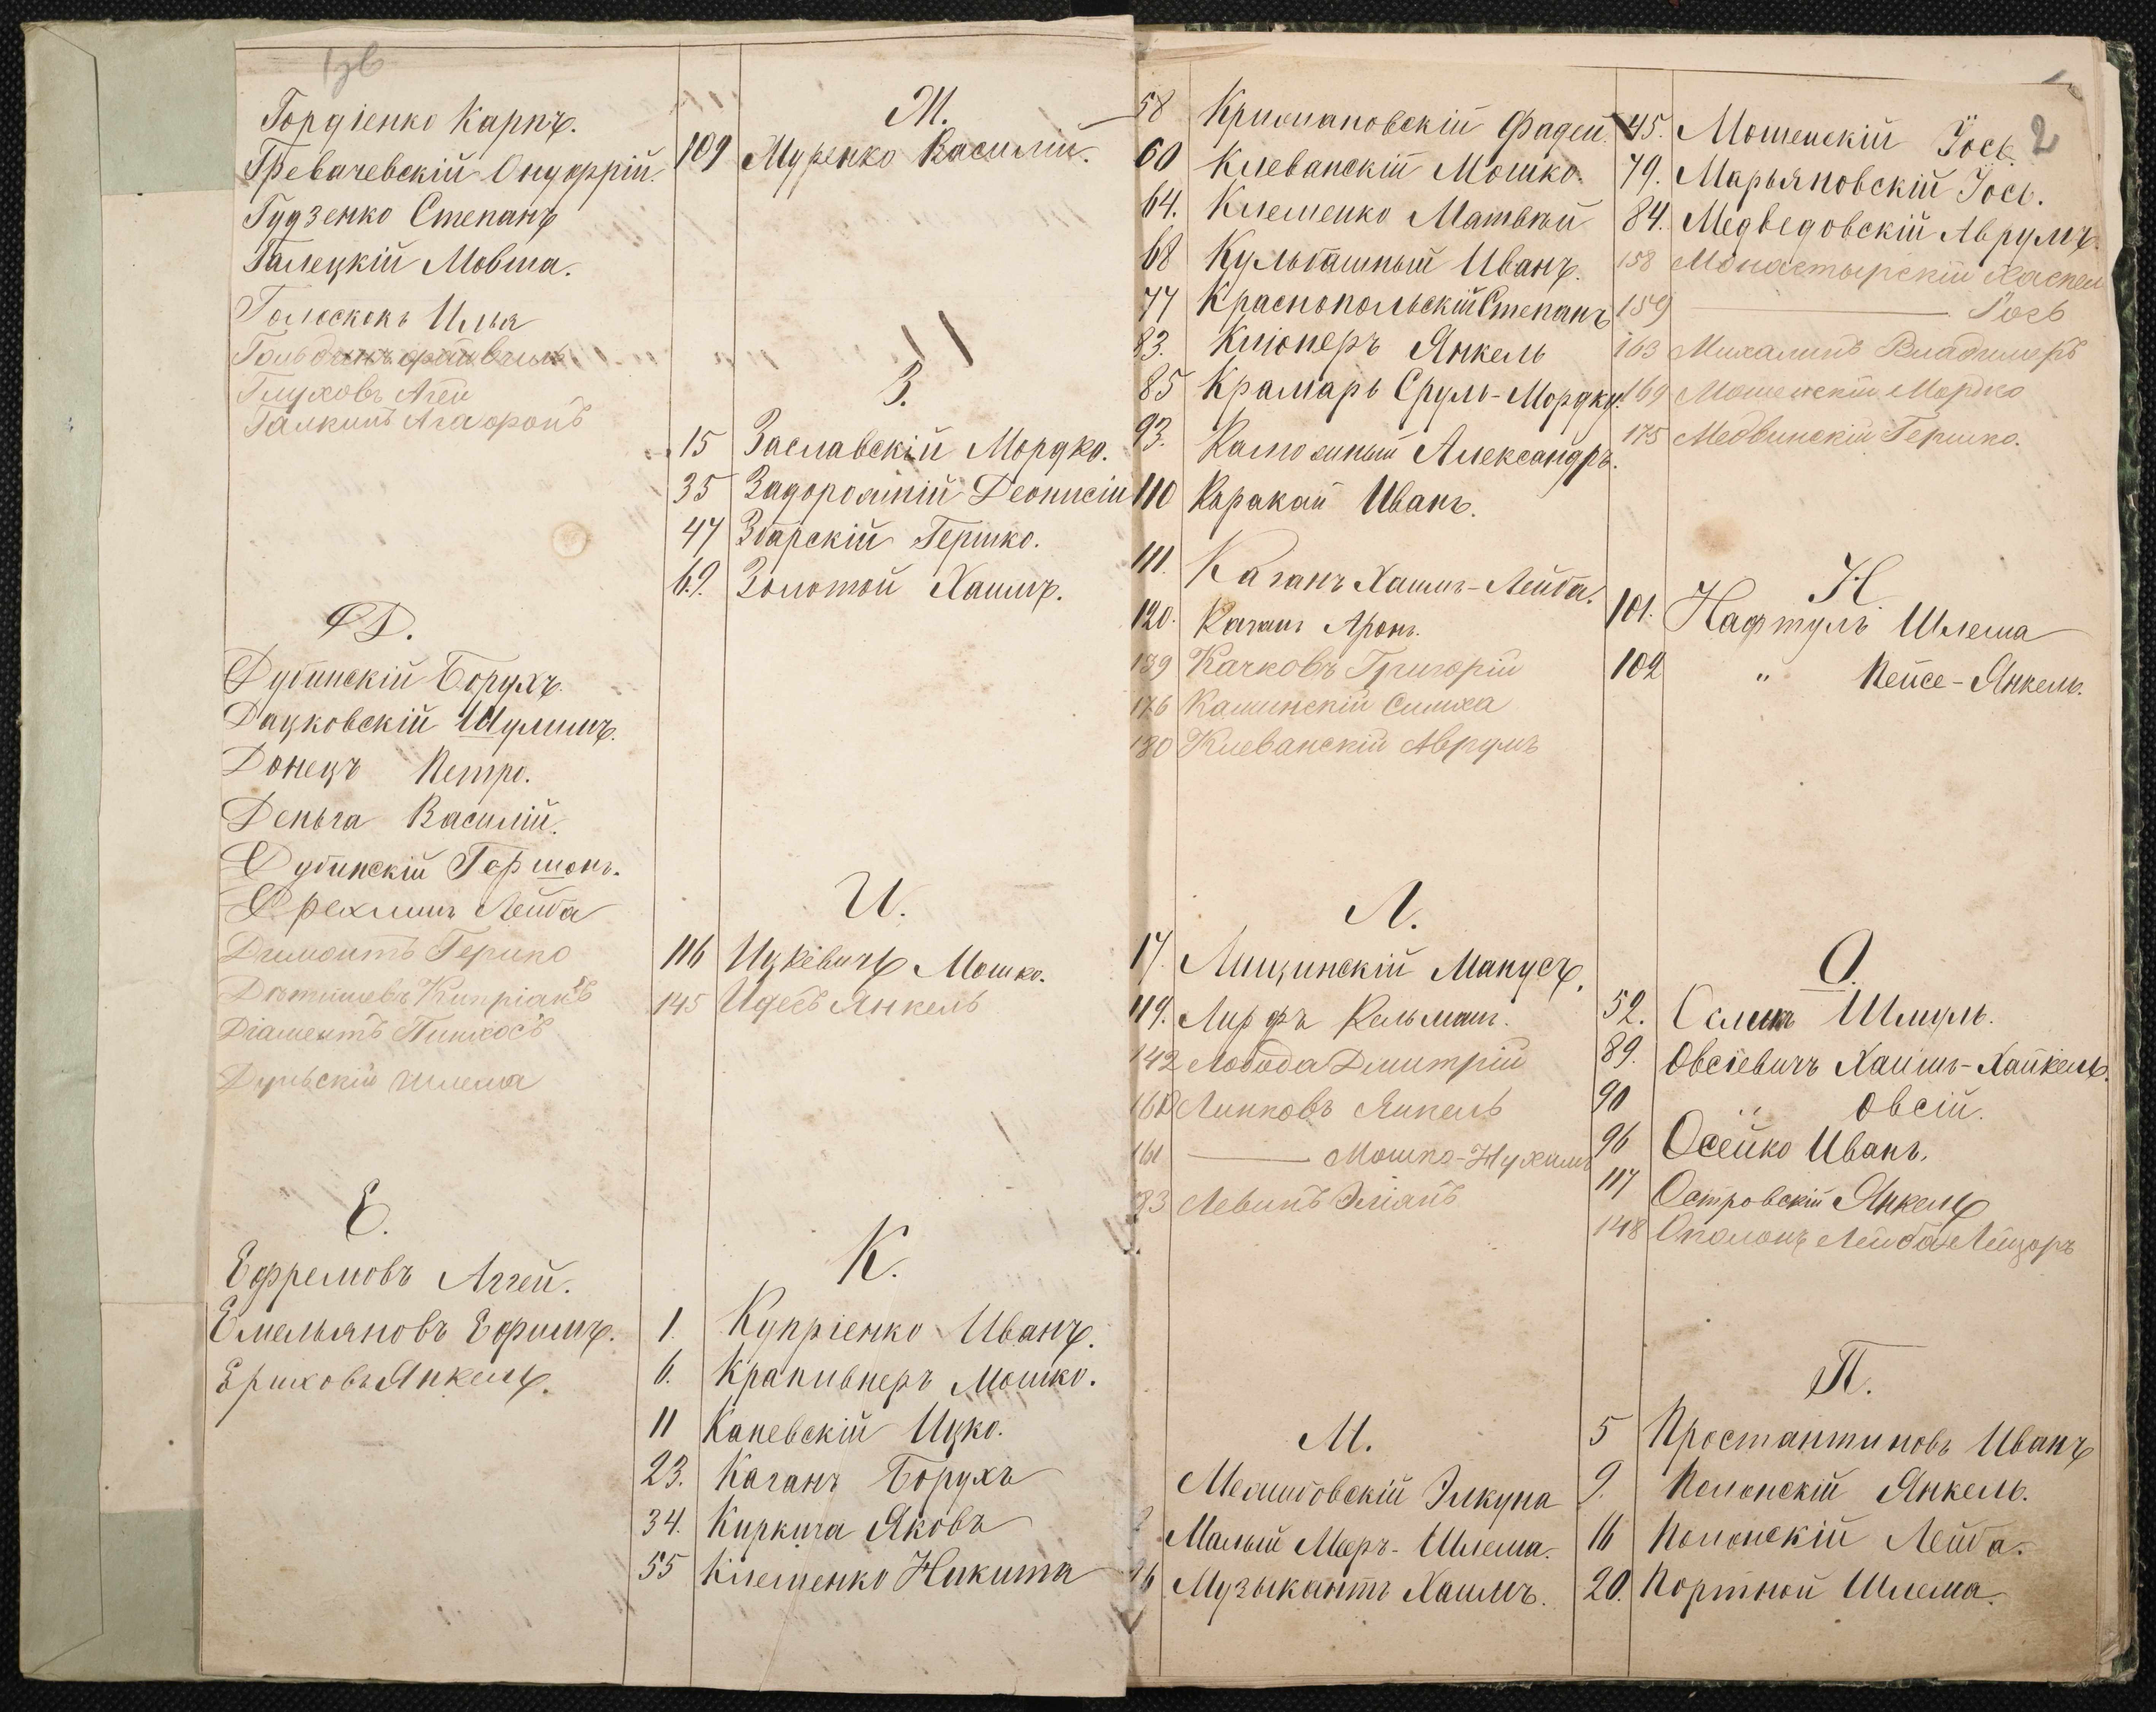 1зв
Гордіенко Карпъ.
Гревачевскій Онуфрій.
Гудзенко Степанъ
Галецкій Мовша.
Голосконъ Илья
Глуховъ Агей
Галкинъ Агафонъ
Д.
Дубинскій Борухъ.
Дацковскій Шулимъ.
Донецъ Петро.
Деньга Василій.
Дубинскій Гершонъ.
Дрехлинъ Лейба
Димонтъ Гершко
Кипріанъ
Діаментъ Пинхосъ
Дульскій Шлема
Е.
Ефремовъ Аггей.
Емельяновъ Ефимъ.
Ериховъ Янкель.
Ж.
109 Журенко Василій.
З.
15 Заславскій Мордко.
35 Задорожній Деонисій
47 Збарскій Гершко.
69. Золотой Хаимъ.
И.
116 Ицкевичъ Мошко.
145 Идесъ Янкель
К.
1. Купріенко Иванъ.
6. Крапивнеръ Мошко.
11 Каневскій Ицко.
23. Каганъ Борухъ
34. Киркича Яковъ
55 Клеменко Никита
58 Крижановскій Фадей.
60 Клеванскій Мошко.
64. Клеменко Матвѣй
68 Кульбашный Иванъ.
77 Краснопольскій Степанъ
83. Кпіонеръ Янкель
85 Крамаръ Сруль-Мордку.
93. Александръ.
110 Каракай Иванъ.
111. Каганъ Хаимъ-Лейба.
120. Каганъ Аронъ.
139 Качковъ Григорій
176 Каминскій Симха
180 Клеванскій Аврумъ
Л.
17. Лищинскій Манусъ.
119. Лирфъ Кельманъ.
142 Лобода Дмитрій
160 Линковъ Янкель
161 ——— Мошко-Нухимъ
83 Левинъ
М.
Межибовскій Элкуна
Малый Меръ-Шлема.
Музыкантъ Хаимъ.
2
45. Мошенскій Іось.
79. Марьяновскій Іось.
84. Медведовскій Аврумъ.
158 Монастырскій Хаскел
159 ——— Іось
163 Михалинъ Владимеръ
169 Мошенскій Мордко
175 Медвинскій Гершко.
Н.
101. Нафтулъ Шлема
102 " Пейсе-Янкель.
О.
52. Шмуль.
89. Овсіевичъ Хаимъ-Хайкель.
90 " Овсій.
96 Осейко Иванъ.
117 Островскій Янкель
148 Ополонъ Лейба-Лейзоръ
П.
5 Простантиновъ Иванъ
9. Полонскій Янкель.
16 Полонскій Лейба.
20. Портной Шлема.